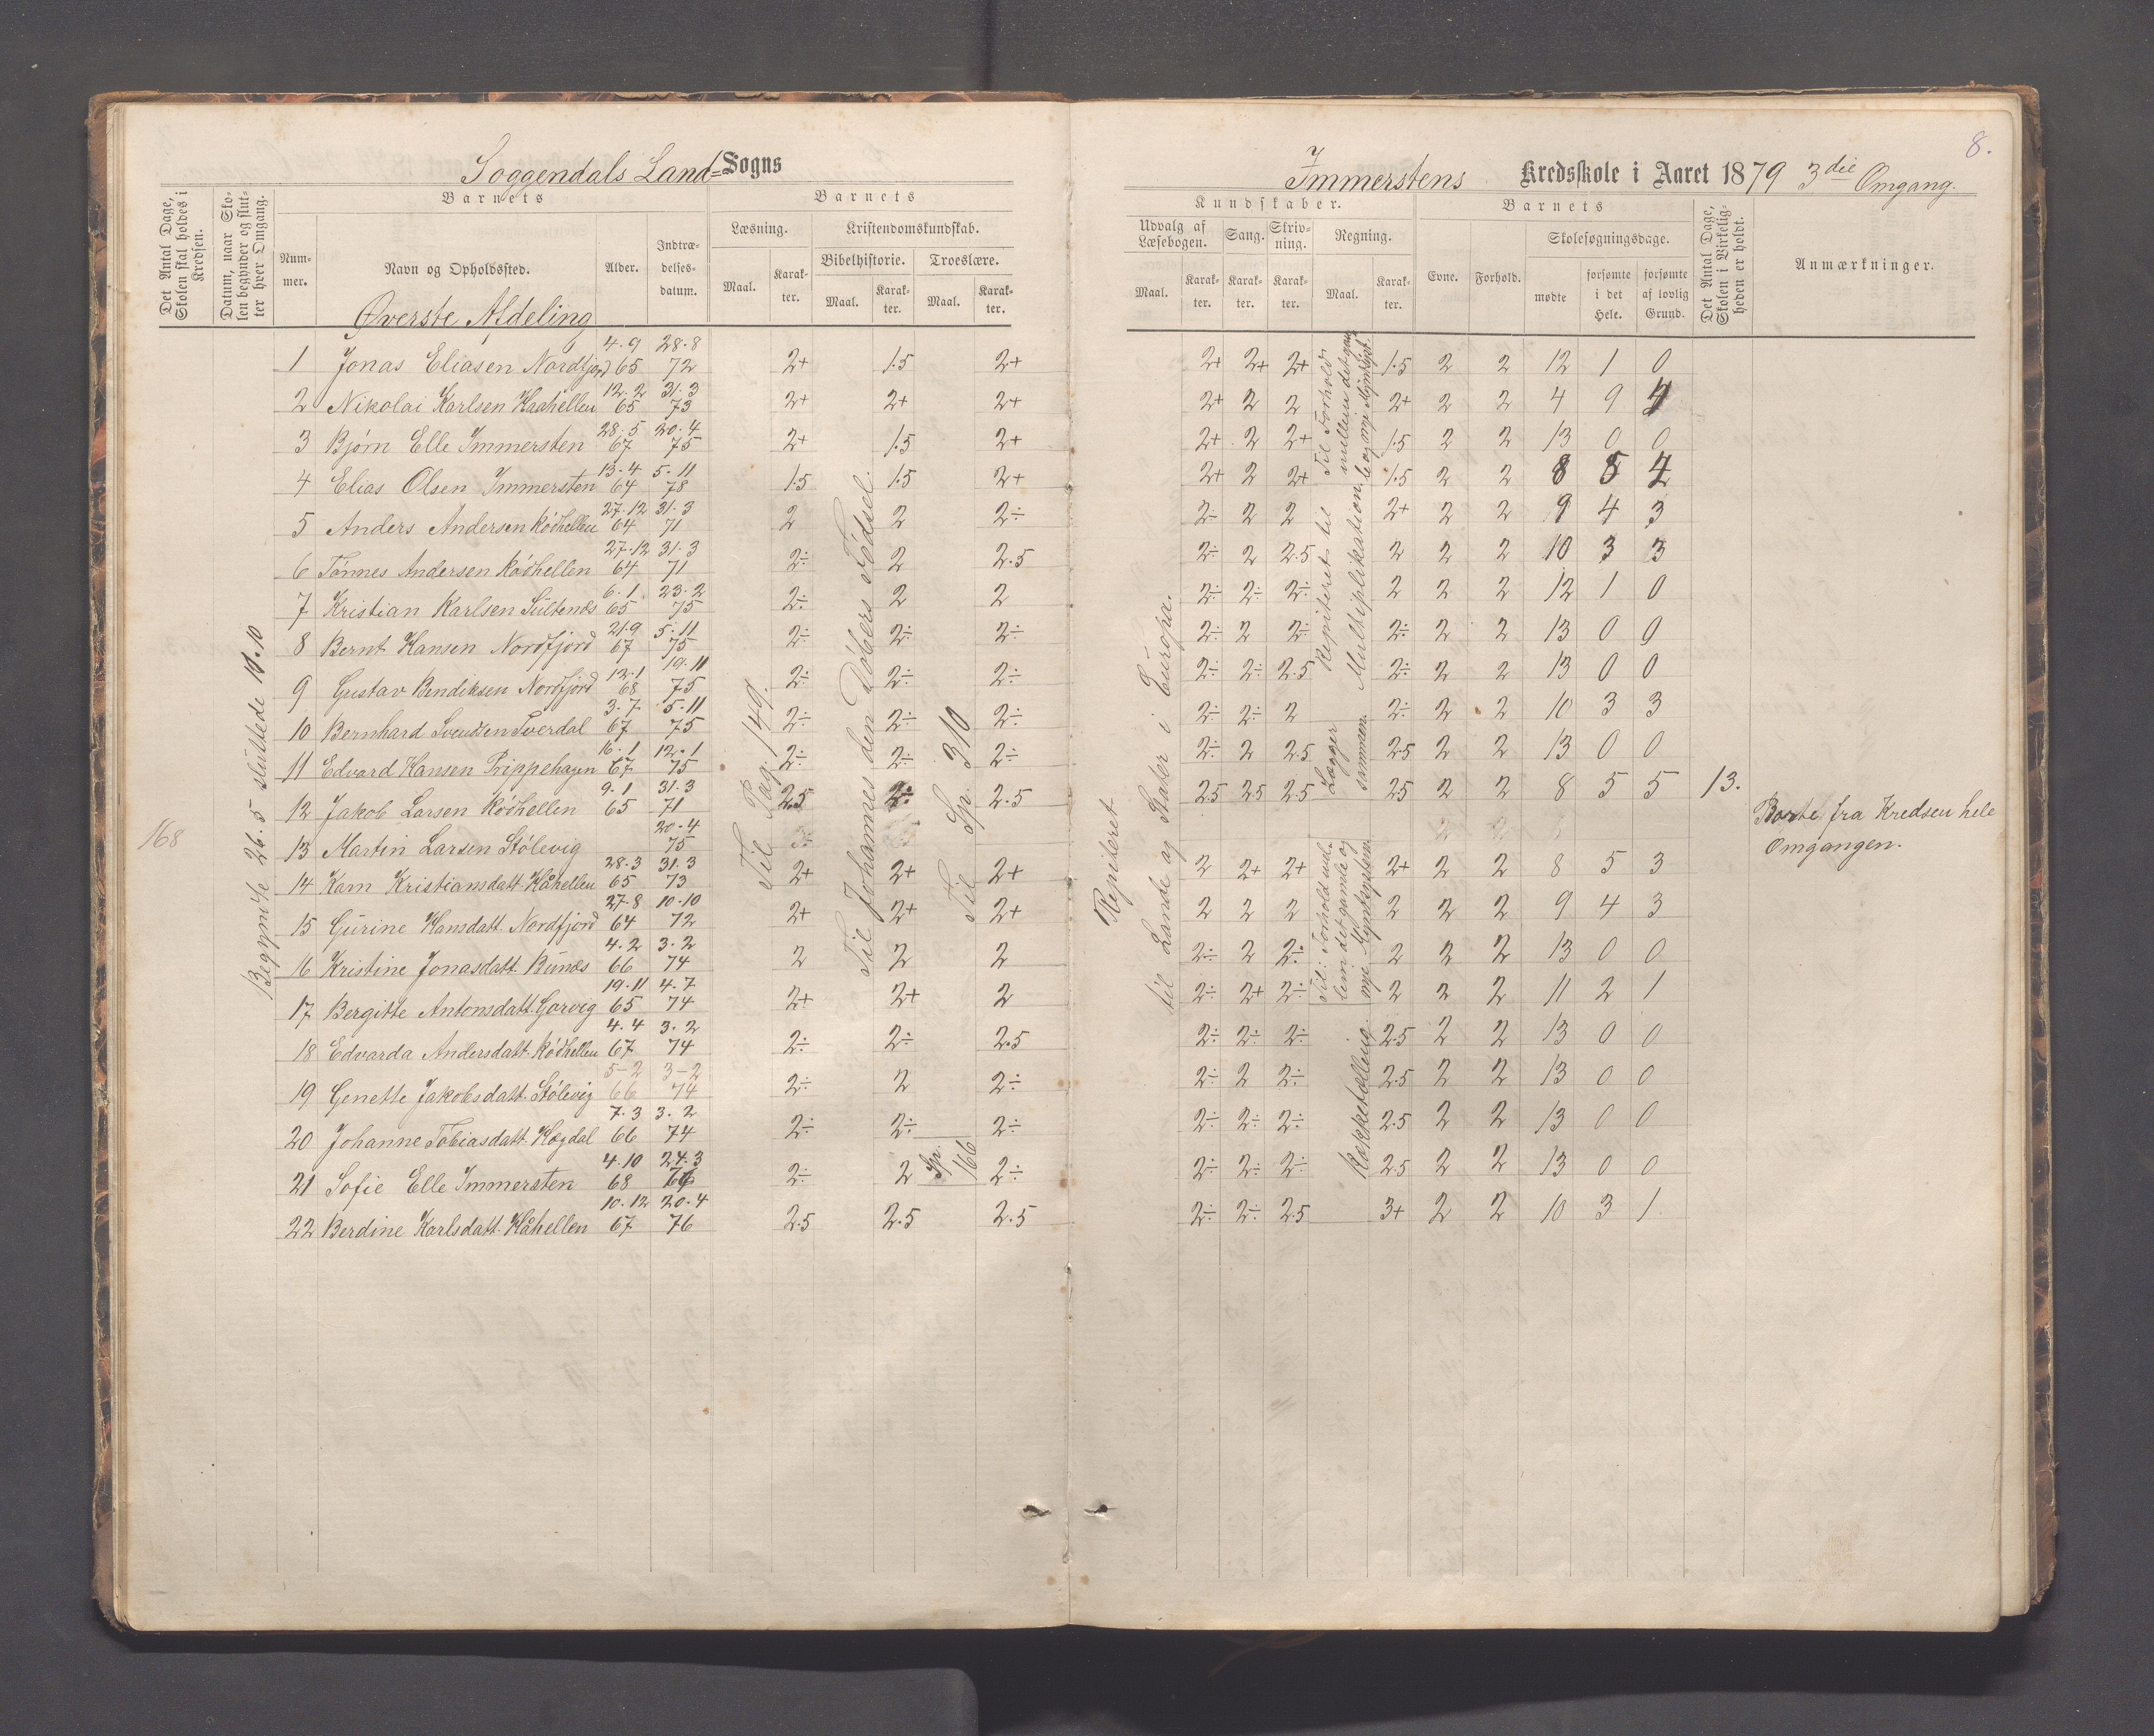 8.
Soggendals Land= Sogns
Immerstens Kredsskole i Aaret 1879 3die Omgang.
Det Antal Dage, Skolen skal holdes i Kredsen.
Datum, naar Skolen begynder og slutter hver Omgang.
Barnets
Nummer.
Navn og Opholdssted.
Alder.
Indtrædelsesdatum.
Barnets
Læsning.
Kristendomskundskab.
Bibelhistorie.
Troeslære.
Maal.
Karakter.
Maal.
Karakter.
Maal.
Karakter.
Kundskaber.
Udvalg af Læsebogen.
Sang.
Skrivning.
Regning.
Maal.
Karakter.
Karakter.
Karakter.
Maal.
Karakter.
Barnets
Evne.
Forhold.
Skolesøgningsdage.
mødte
forsømte i det Hele.
forsømte af lovlig Grund.
Det Antal Dage, Skolen i Virkeligheden er holdt.
Anmærkninger.
Øverste Afdeling
168
Begynte 26.5 sluttede 10.10
1 Jonas Eliasen Nordfjord 4.9 65 28.8 72 2+ 1.5 2+ 2+ 2+ 2+ 1.5 2 2 12 1 0
2 Nikolai Karlsen Haahellen 12.2 65 31.3 73 2+ 2+ 2+ 2+ 2 2 2+ 2 2 4 9 4
3 Bjørn Elle Immersten 28.5 67 20.4 75 2+ 1.5 2+ 2+ 2 2+ 1.5 2 2 13 0 0
4 Elias Olsen Immersten 13.4 64 5.11 78 1.5 1.5 2+ 2+ 2 2+ 1.5 2 2 8 5 4
5 Anders Andersen Rødhellen 27.12 64 31.3 71 2 2 2÷ 2- 2 2 2+ 2 2 9 4 3
6 Tønnes Andersen Rødhellen 27.12 64 31.3 71 2÷ 2 2.5 2÷ 2 2.5 2 2 2 10 3 3
7 Kristian Karlsen Sultenæs 6.1 65 23.2 75 2÷ 2 2 2÷ 2÷ 2÷ 2 2 2 12 1 0
8 Bernt Hansen Nordfjord 21.9 67 5.11 75 2÷ 2÷ 2÷ 2÷ 2 2÷ 2÷ 2 2 13 0 0
9 Gustav Bendiksen Nordfjord 12.1 68 19.11 75 2÷ 2÷ 2÷ 2÷ 2÷ 2.5 2÷ 2 2 13 0 0
10 Bernhard Svendsen Tverdal 3.7 67 5.11 75 2÷ 2÷ 2÷ 2÷ 2÷ 2 2÷ 2 2 10 3 3
11 Edvard Hansen Prippehagen 16.1 67 12.1 75 2÷ 2÷ 2÷ 2÷ 2 2.5 2.5 2 2 13 0 0
12 Jakob Larsen Rødhellen 9.1 65 31.3 71 2.5 2÷ 2.5 2.5 2.5 2.5 2.5 2 2 8 5 5 13.
13 Martin Larsen Stølevig 20.4 75 Borte fra Kredsen hele Omgangen.
14 Karn Kristiansdatt. Håhellen 28.3 65 31.3 73 2+ 2+ 2+ 2 2+ 2+ 2+ 2 2 8 5 3
15 Gurine Hansdatt. Nordfjord 27.8 64 10.10 72 2+ 2+ 2+ 2 2 2 2 2 2 9 4 3
16 Kristine Jonasdatt. Bunæs 4.2 66 3.2 74 2 2 2 2÷ 2 2÷ 2 2 2 13 0 0
17 Bergitte Antonsdatt. Gorvig 19.11 65 4.7 74 2+ 2+ 2 2÷ 2+ 2÷ 2 2 2 11 2 1
18 Edvarda Andersdatt. Rødhellen 4.4 67 3.2 74 2÷ 2÷ 2.5 2÷ 2÷ 2÷ 2.5 2 2 13 0 0
19 Genette Jakobsdatt. Stølevig 5-2 66 3-2 74 2÷ 2 2÷ 2÷ 2 2÷ 2.5 2 2 13 0 0
20 Johanne Tobiasdatt. Høgdal 7.3 66 3.2 74 2÷ 2÷ 2÷ 2÷ 2÷ 2÷ 2.5 2 2 13 0 0
21 Sofie Elle Immersten 4.10 68 24.3 2÷ 2 2÷ 2÷ 2÷ 2÷ 2.5 2 2 13 0 0
22 Berdine Karlsdatt. Håhellen 10.12 67 20.4 76 2.5 2.5 2.5 2÷ 2÷ 2.5 3+ 2 2 10 3 1
Til Pag. 149.
Til Johannes den Døbers Fødsel.
Til Sp. 310
Sp. 166
Repiteret
til Lande og Stater i Europa.
Repiteret til Multiplikation.
Til Forhold
Lægger sammen.
Til: Forhold mellem det gamle og nye Myntsystem.
Rækketælling.